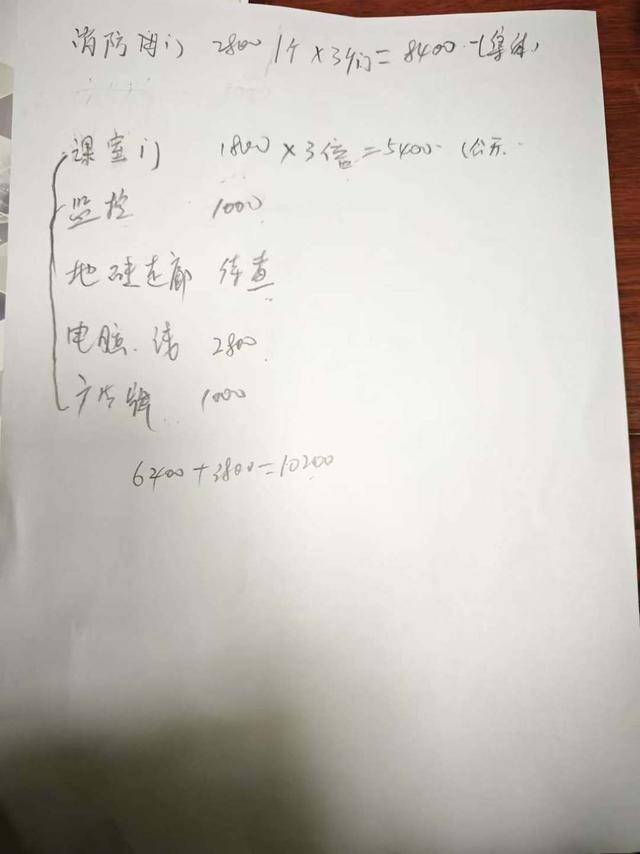 消防门 2800 1个 × 3个 = 8400
课室门 1800 × 3倍 = 5400 (公
监控 1000
地 走廊 待查
电脑、线 2800
广告牌 1000
6400 + 3800 = 10200